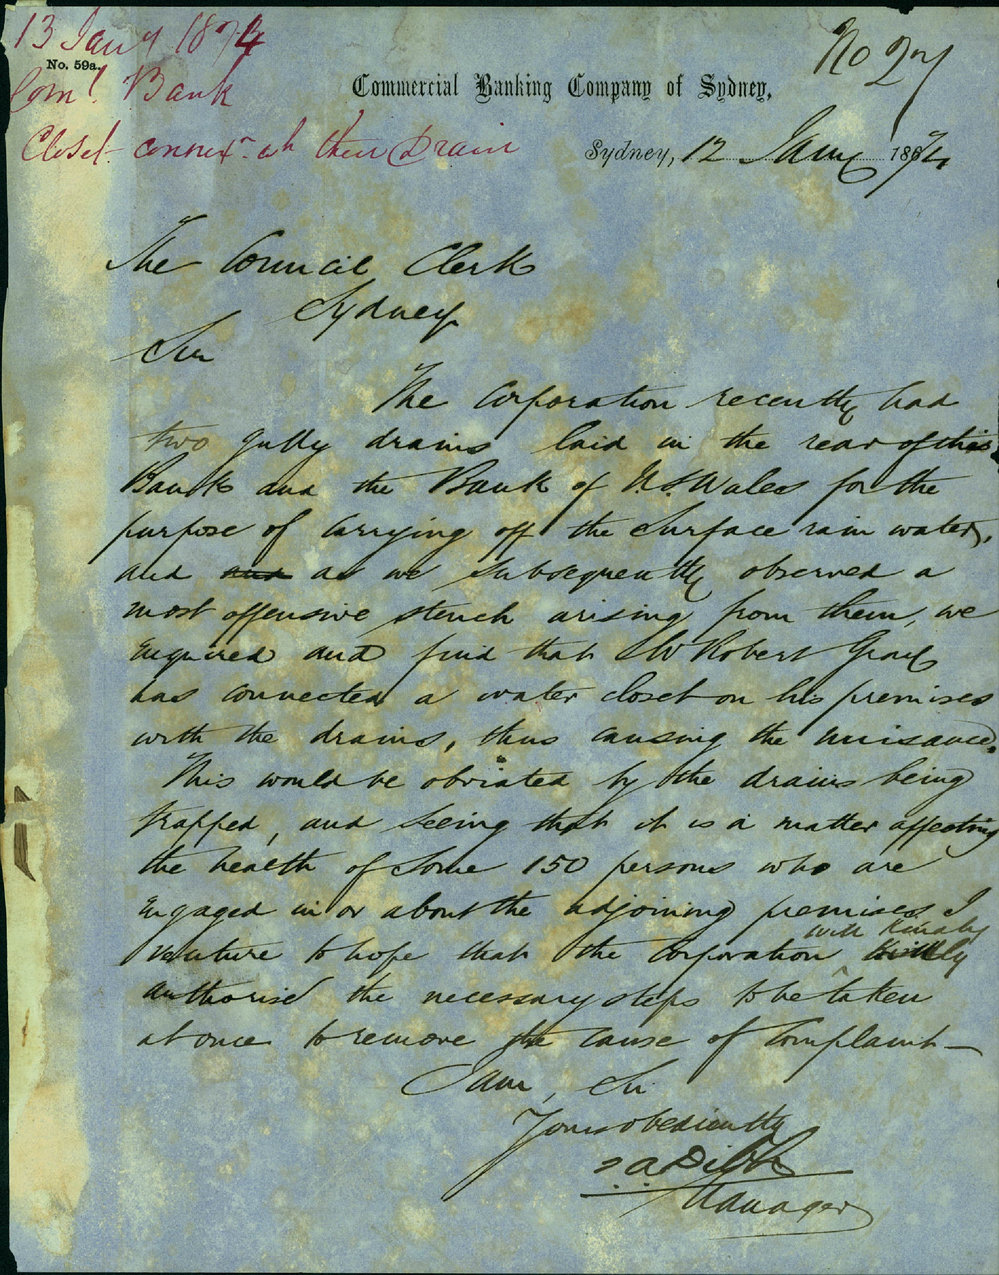 13 Jany 1874
No. 59a.
Coml. Bank
Closet connex. wh their Drain
No 27
Commercial Banking Company of Sydney,
Sydney, 12 Jany 1874
The Council Clerk
Sydney
Sir
The Corporation recently had
two gully drains laid in the rear of this
Bank and the Bank of N.S.Wales for the
purpose of carrying off the surface rain water,
and and as we subsequently observed a
most offensive stench arising from them, we
enquired and find that Mr Robert Gray
has connected a water closet on his premises
with the drains, thus causing the nuisance.
This would be obviated by the drains being
trapped, and seeing that it is a matter affecting
the health of some 150 persons who are
engaged in or about the adjoining premises I
will kindly
venture to hope that the Corporation
authorise the necessary steps to be taken
at once to remove the cause of complaint—
I am, Sir
Yours obediently
Manager